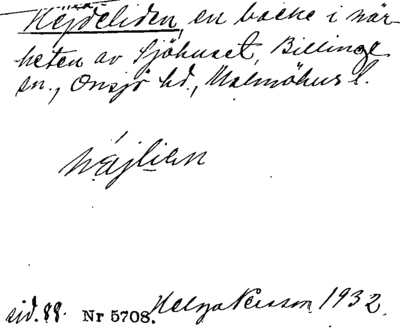 Hejdeliden, en backe i när-
heten av Sjöhuset, Billinge
sn., Onsjö hd., Malmöhus l.
häjlien
sid. 88. Nr 5708. Helga Persson 1932.